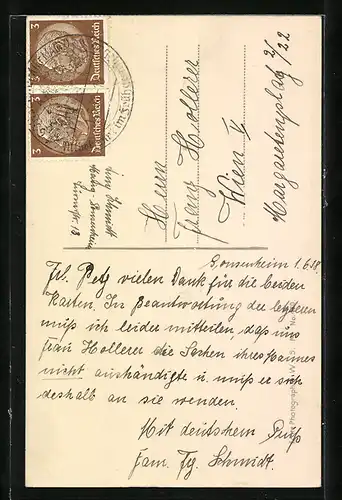 3
Deutsches Reich
3
Deutsches Reich
Herrn
Franz Hollerer
Wien V
Margaretenplatz 2/22
Schmidt
Mainz-Gonsenheim
13
Gonsenheim 1.6.38.
Frl. Petz vielen Dank für die beiden
Karten. In Beantwortung der letzteren
muß ich leider mitteilen, daß uns
Frau Hollerer die Sachen ihres Mannes
nicht aushändigte u. muß er sich
deshalb an sie wenden.
Mit deutschem Gruß
Fam. Fg. Schmidt.